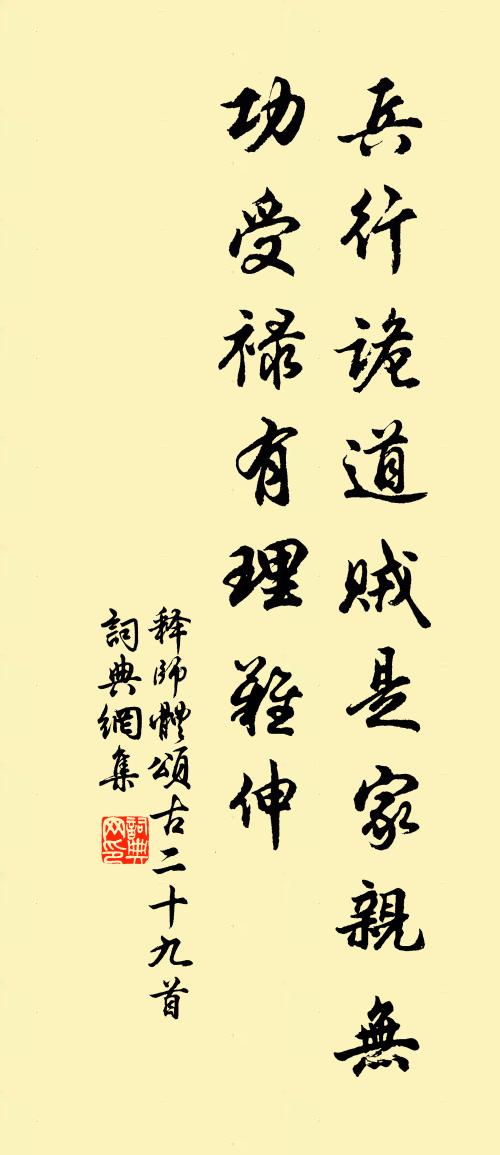 兵行詭道賊是家親無
功受禄有理難伸
释師體頌古二十九首
詞典網集
詞典网印